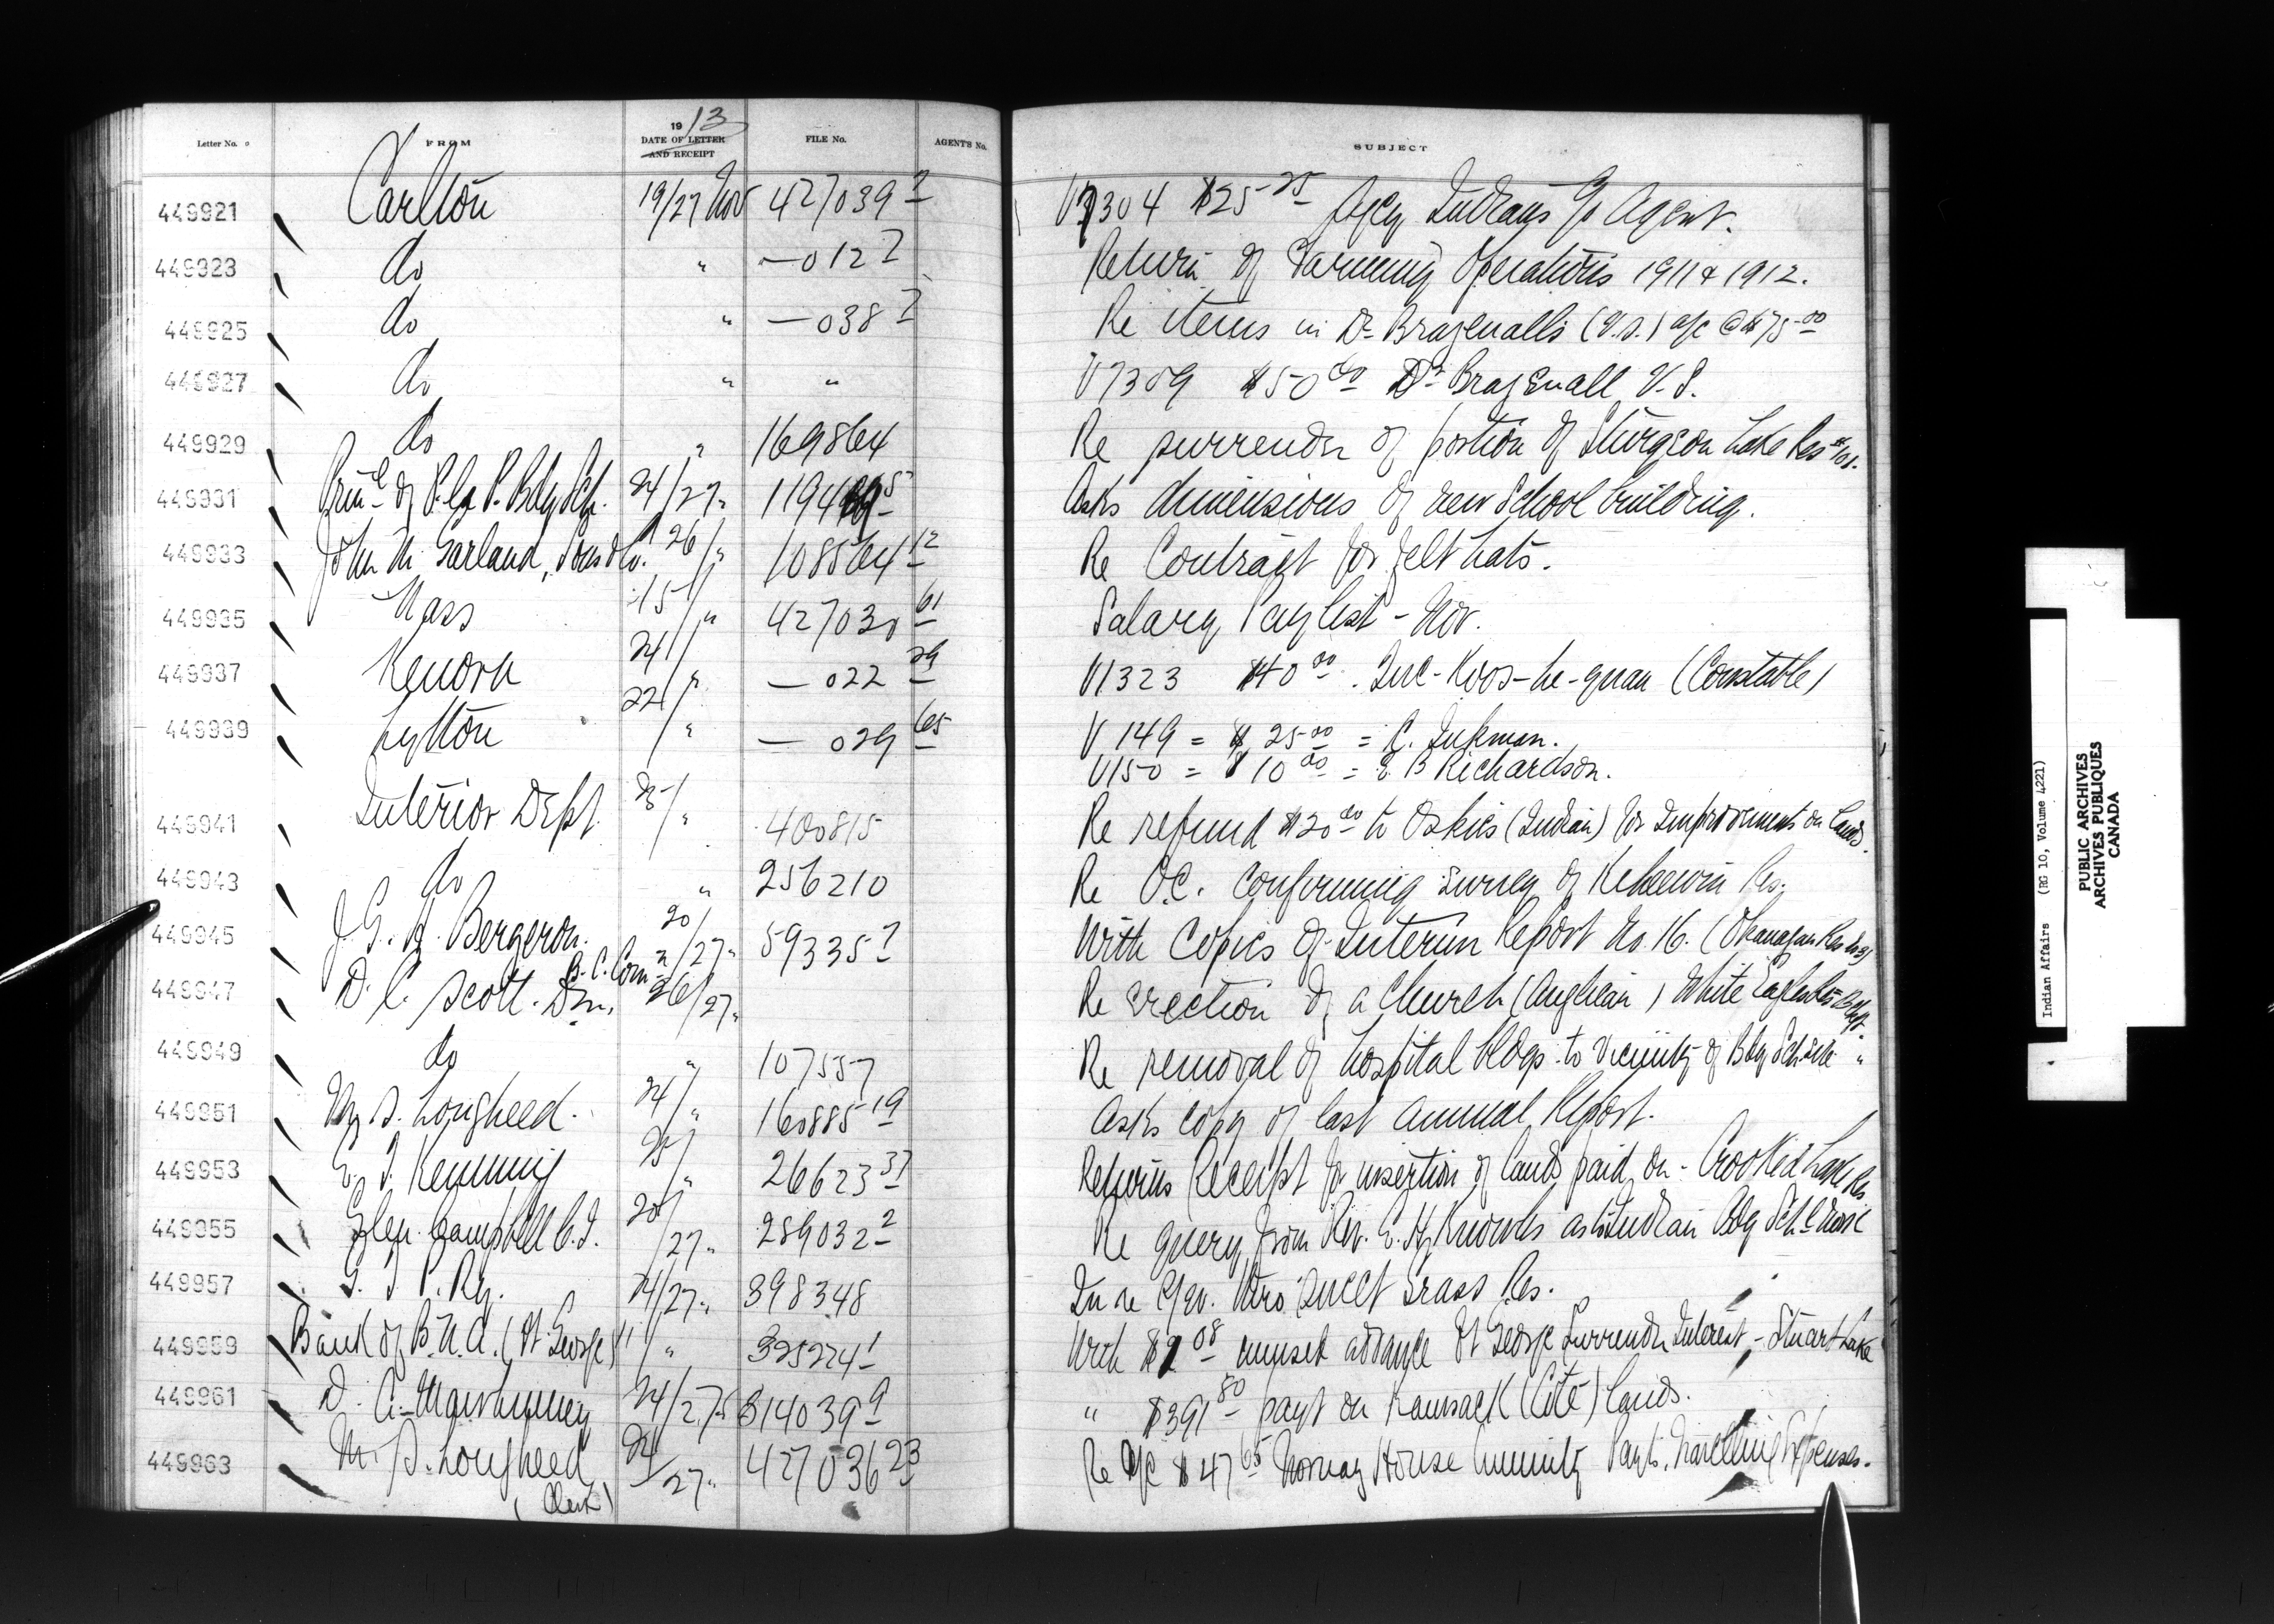 Letter No.
FROM
1913
DATE OF LETTER
AND RECEIPT
FILE No.
AGENT'S No.
SUBJECT
449921 Carlton 19/27 Nov 427039 2 V7304 $25 25 Indians Agent.
449923 do " —012 2 Return of Farming Operations 1911 & 1912.
449925 do " —038 2 Re items in Dr. Braznalls (V.S.) a/c @ $75 00
449927 do " " V7309 $50 00 Dr Braznall V.S.
449929 do " 169864 Re surrender of portion of Sturgeon Lake Res #101.
449931 Prinl of P. la P. Bdg Sch. 24/27 " Asks dimensions of new School building.
449933 John M. Garland, Sons & Co. 26/" 108564 12 Re Contract for felt hats.
449935 Nass 15/" 427030 61 Salary Paylist - Nov.
449937 Kenora 24/" —022 29 V1323 $40 00 (Constable)
449939 Lytton 22/" —029 65 V149 = $25 00 = C. Inkman.
V150 = $10 00 = E B Richardson.
449941 Interior Dept 25/" 400815 Re refund $20 00 to Oskies (Indian) for Improvements on lands.
449943 do " 256210 Re O.C. confirming survey of Keheewin Res.
449945 J. G. H. Bergeron. B.C. Comn 20/27 " 59335 7 With Copies of Interim Report No. 16. (Okanagan Res)
449947 D. C. Scott. 26/27 " Re erection of a Church (Anglican) White Eagles
449949 do " 107557 Re removal of hospital bldgs. to vicinity of Bdg School "
449951 M. S. Lougheed. 24/" 160885 19 Asks copy of last annual Report.
449953 25/" 26623 37 Returns Receipt for insertion of lands paid on - Crooked Lake Res
449955 Glen Campbell C.I. 20/27 " 289032 2 Re query from Rev. E. H. Knowles as to Indian Bdg Sch
449957 G. T. P. Ry. 24/27 " 398348 In re Sweet Grass Res.
449959 Bank of B.N.A. (Ft George) " 325224 1 With 08 advance Ft George Surrender Interest, - Stuart Lake
449961 D. A. 24/27 " 314039 9 " $391 80 payt on Kamsack (Cité) lands.
449963 M. S. Lougheed (Clerk) 24/27 " 427036 23 Re a/c $47 65 Norway House Annuity Payts. Travelling Expenses.
Indian Affairs (RG 10, Volume 4221)
PUBLIC ARCHIVES
ARCHIVES PUBLIQUES
CANADA